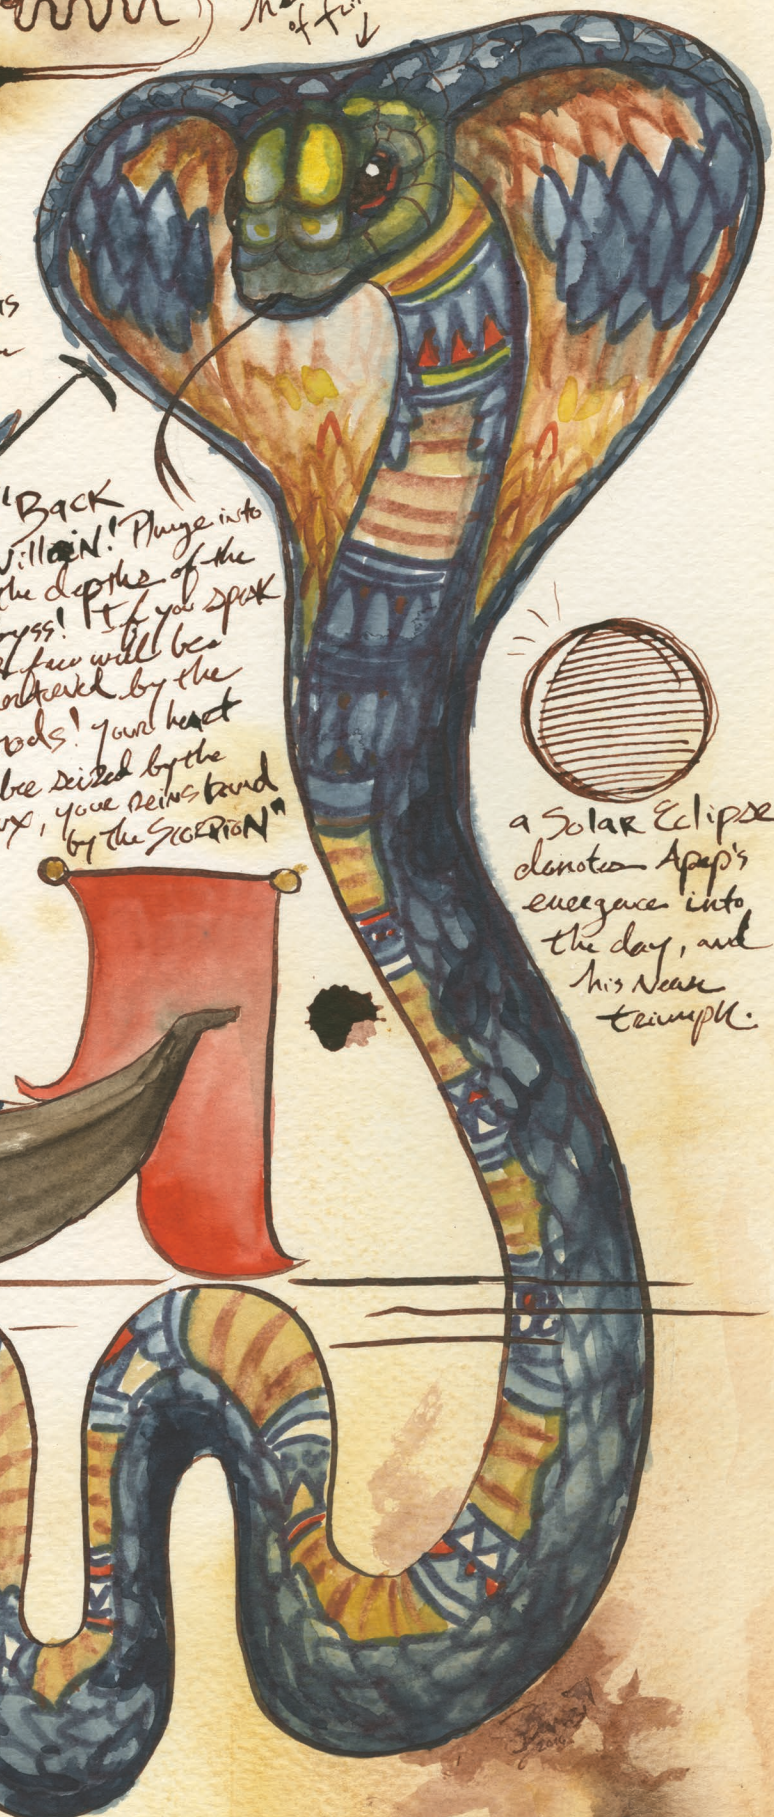 of
"Back
Villain! Plunge into
the depths of the
yss! If you speak
face will be
by the
ods! your heart
be seized by the
x, your reins bound
by the Scorpion"
a Solar Eclipse
denotes Apep's
emergence into
the day, and
his near
triumph.
2016